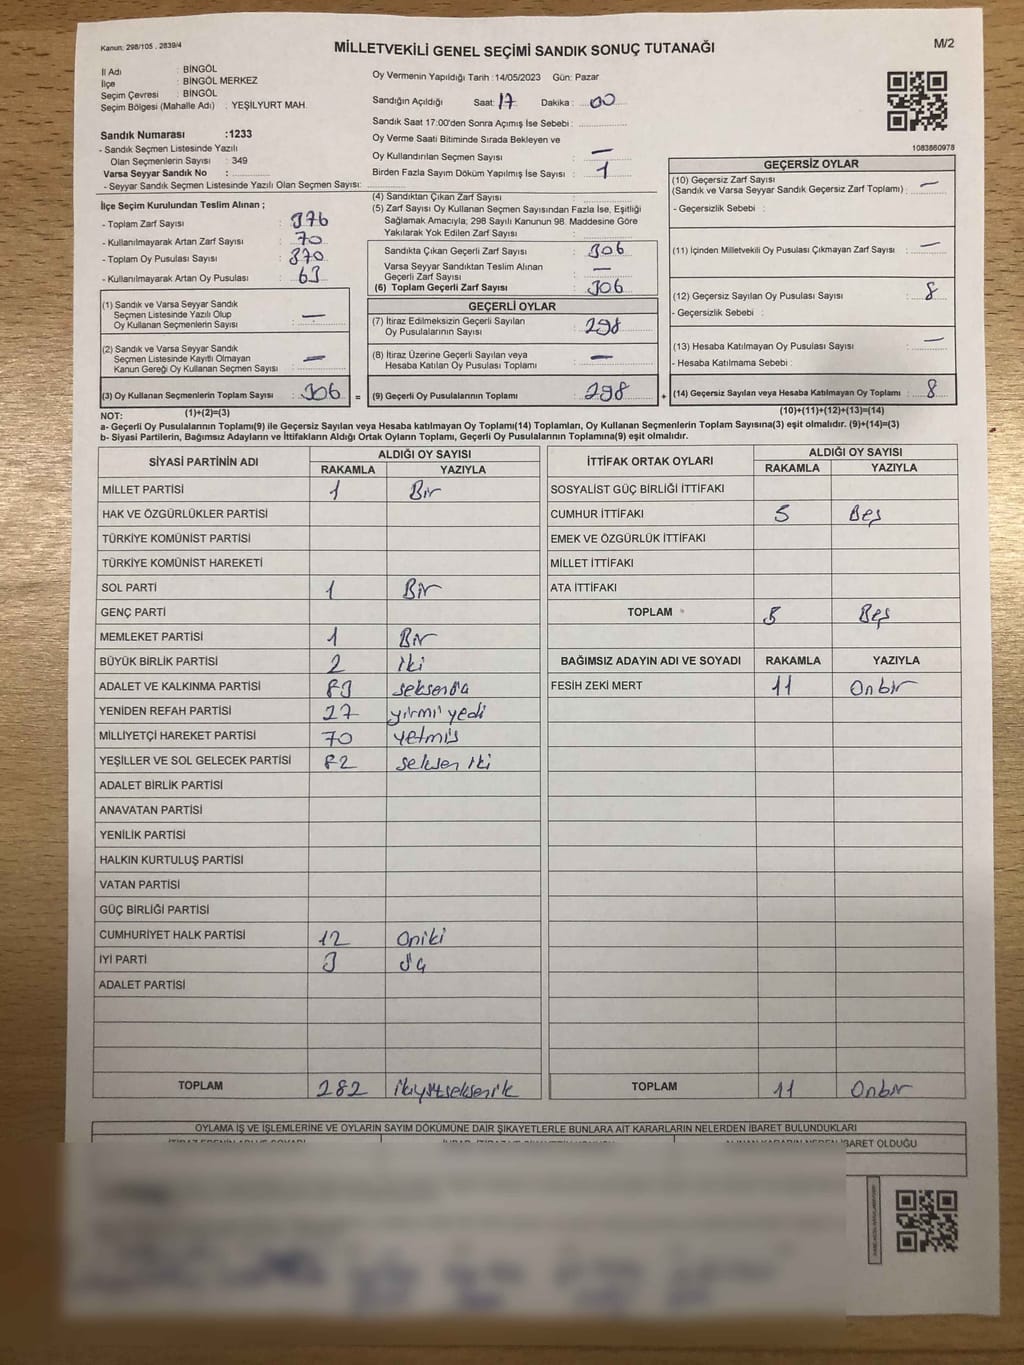 Kanun: 298/105 , 2839/4
MİLLETVEKİLİ GENEL SEÇİMİ SANDIK SONUÇ TUTANAĞI
M/2
İl Adı : BİNGÖL
İlçe : BİNGÖL MERKEZ
Seçim Çevresi : BİNGÖL
Seçim Bölgesi (Mahalle Adı) : YEŞİLYURT MAH.
Sandık Numarası :1233
- Sandık Seçmen Listesinde Yazılı
Olan Seçmenlerin Sayısı : 349
Varsa Seyyar Sandık No :
- Seyyar Sandık Seçmen Listesinde Yazılı Olan Seçmen Sayısı:
Oy Vermenin Yapıldığı Tarih :14/05/2023 Gün: Pazar
Sandığın Açıldığı Saat: 17 Dakika : 00
Sandık Saat 17:00'den Sonra Açımış İse Sebebi :
Oy Verme Saati Bitiminde Sırada Bekleyen ve
Oy Kullandırılan Seçmen Sayısı : —
Birden Fazla Sayım Döküm Yapılmış İse Sayısı : 1
1083660978
İlçe Seçim Kurulundan Teslim Alınan ;
- Toplam Zarf Sayısı : 376
- Kullanılmayarak Artan Zarf Sayısı : 70
- Toplam Oy Pusulası Sayısı : 370
- Kullanılmayarak Artan Oy Pusulası : 63
(1) Sandık ve Varsa Seyyar Sandık
Seçmen Listesinde Yazılı Olup
Oy Kullanan Seçmenlerin Sayısı : —
(2) Sandık ve Varsa Seyyar Sandık
Seçmen Listesinde Kayıtlı Olmayan
Kanun Gereği Oy Kullanan Seçmen Sayısı : —
(3) Oy Kullanan Seçmenlerin Toplam Sayısı : 306 =
(4) Sandıktan Çıkan Zarf Sayısı :
(5) Zarf Sayısı Oy Kullanan Seçmen Sayısından Fazla İse, Eşitliği
Sağlamak Amacıyla; 298 Sayılı Kanunun 98. Maddesine Göre
Yakılarak Yok Edilen Zarf Sayısı :
Sandıkta Çıkan Geçerli Zarf Sayısı : 306
Varsa Seyyar Sandıktan Teslim Alınan
Geçerli Zarf Sayısı : —
(6) Toplam Geçerli Zarf Sayısı : 306
GEÇERLİ OYLAR
(7) İtiraz Edilmeksizin Geçerli Sayılan
Oy Pusulalarının Sayısı : 298
(8) İtiraz Üzerine Geçerli Sayılan veya
Hesaba Katılan Oy Pusulası Toplamı : —
(9) Geçerli Oy Pusulalarının Toplamı : 298 +
GEÇERSİZ OYLAR
(10) Geçersiz Zarf Sayısı
(Sandık ve Varsa Seyyar Sandık Geçersiz Zarf Toplamı) : —
- Geçersizlik Sebebi :
(11) İçinden Milletvekili Oy Pusulası Çıkmayan Zarf Sayısı : —
(12) Geçersiz Sayılan Oy Pusulası Sayısı : 8
- Geçersizlik Sebebi :
(13) Hesaba Katılmayan Oy Pusulası Sayısı : —
- Hesaba Katılmama Sebebi :
(14) Geçersiz Sayılan veya Hesaba Katılmayan Oy Toplamı : 8
NOT: (1)+(2)=(3) (10)+(11)+(12)+(13)=(14)
a- Geçerli Oy Pusulalarının Toplamı(9) ile Geçersiz Sayılan veya Hesaba katılmayan Oy Toplamı(14) Toplamları, Oy Kullanan Seçmenlerin Toplam Sayısına(3) eşit olmalıdır. (9)+(14)=(3)
b- Siyasi Partilerin, Bağımsız Adayların ve İttifakların Aldığı Ortak Oyların Toplamı, Geçerli Oy Pusulalarının Toplamına(9) eşit olmalıdır.
SİYASİ PARTİNİN ADI ALDIĞI OY SAYISI
RAKAMLA YAZIYLA
MİLLET PARTİSİ 1 Bir
HAK VE ÖZGÜRLÜKLER PARTİSİ
TÜRKİYE KOMÜNİST PARTİSİ
TÜRKİYE KOMÜNİST HAREKETİ
SOL PARTİ 1 Bir
GENÇ PARTİ
MEMLEKET PARTİSİ 1 Bir
BÜYÜK BİRLİK PARTİSİ 2 iki
ADALET VE KALKINMA PARTİSİ 83
YENİDEN REFAH PARTİSİ 27 yirmi yedi
MİLLİYETÇİ HAREKET PARTİSİ 70 yetmiş
YEŞİLLER VE SOL GELECEK PARTİSİ 82 seksen iki
ADALET BİRLİK PARTİSİ
ANAVATAN PARTİSİ
YENİLİK PARTİSİ
HALKIN KURTULUŞ PARTİSİ
VATAN PARTİSİ
GÜÇ BİRLİĞİ PARTİSİ
CUMHURİYET HALK PARTİSİ 12 Oniki
İYİ PARTİ 3 üç
ADALET PARTİSİ
TOPLAM 282
İTTİFAK ORTAK OYLARI ALDIĞI OY SAYISI
RAKAMLA YAZIYLA
SOSYALİST GÜÇ BİRLİĞİ İTTİFAKI
CUMHUR İTTİFAKI 5 Beş
EMEK VE ÖZGÜRLÜK İTTİFAKI
MİLLET İTTİFAKI
ATA İTTİFAKI
TOPLAM 5 Beş
BAĞIMSIZ ADAYIN ADI VE SOYADI RAKAMLA YAZIYLA
FESİH ZEKİ MERT 11 Onbir
TOPLAM 11 Onbir
OYLAMA İŞ VE İŞLEMLERİNE VE OYLARIN SAYIM DÖKÜMÜNE DAİR ŞİKAYETLERLE BUNLARA AİT KARARLARIN NELERDEN İBARET BULUNDUKLARI
İBARET OLDUĞU